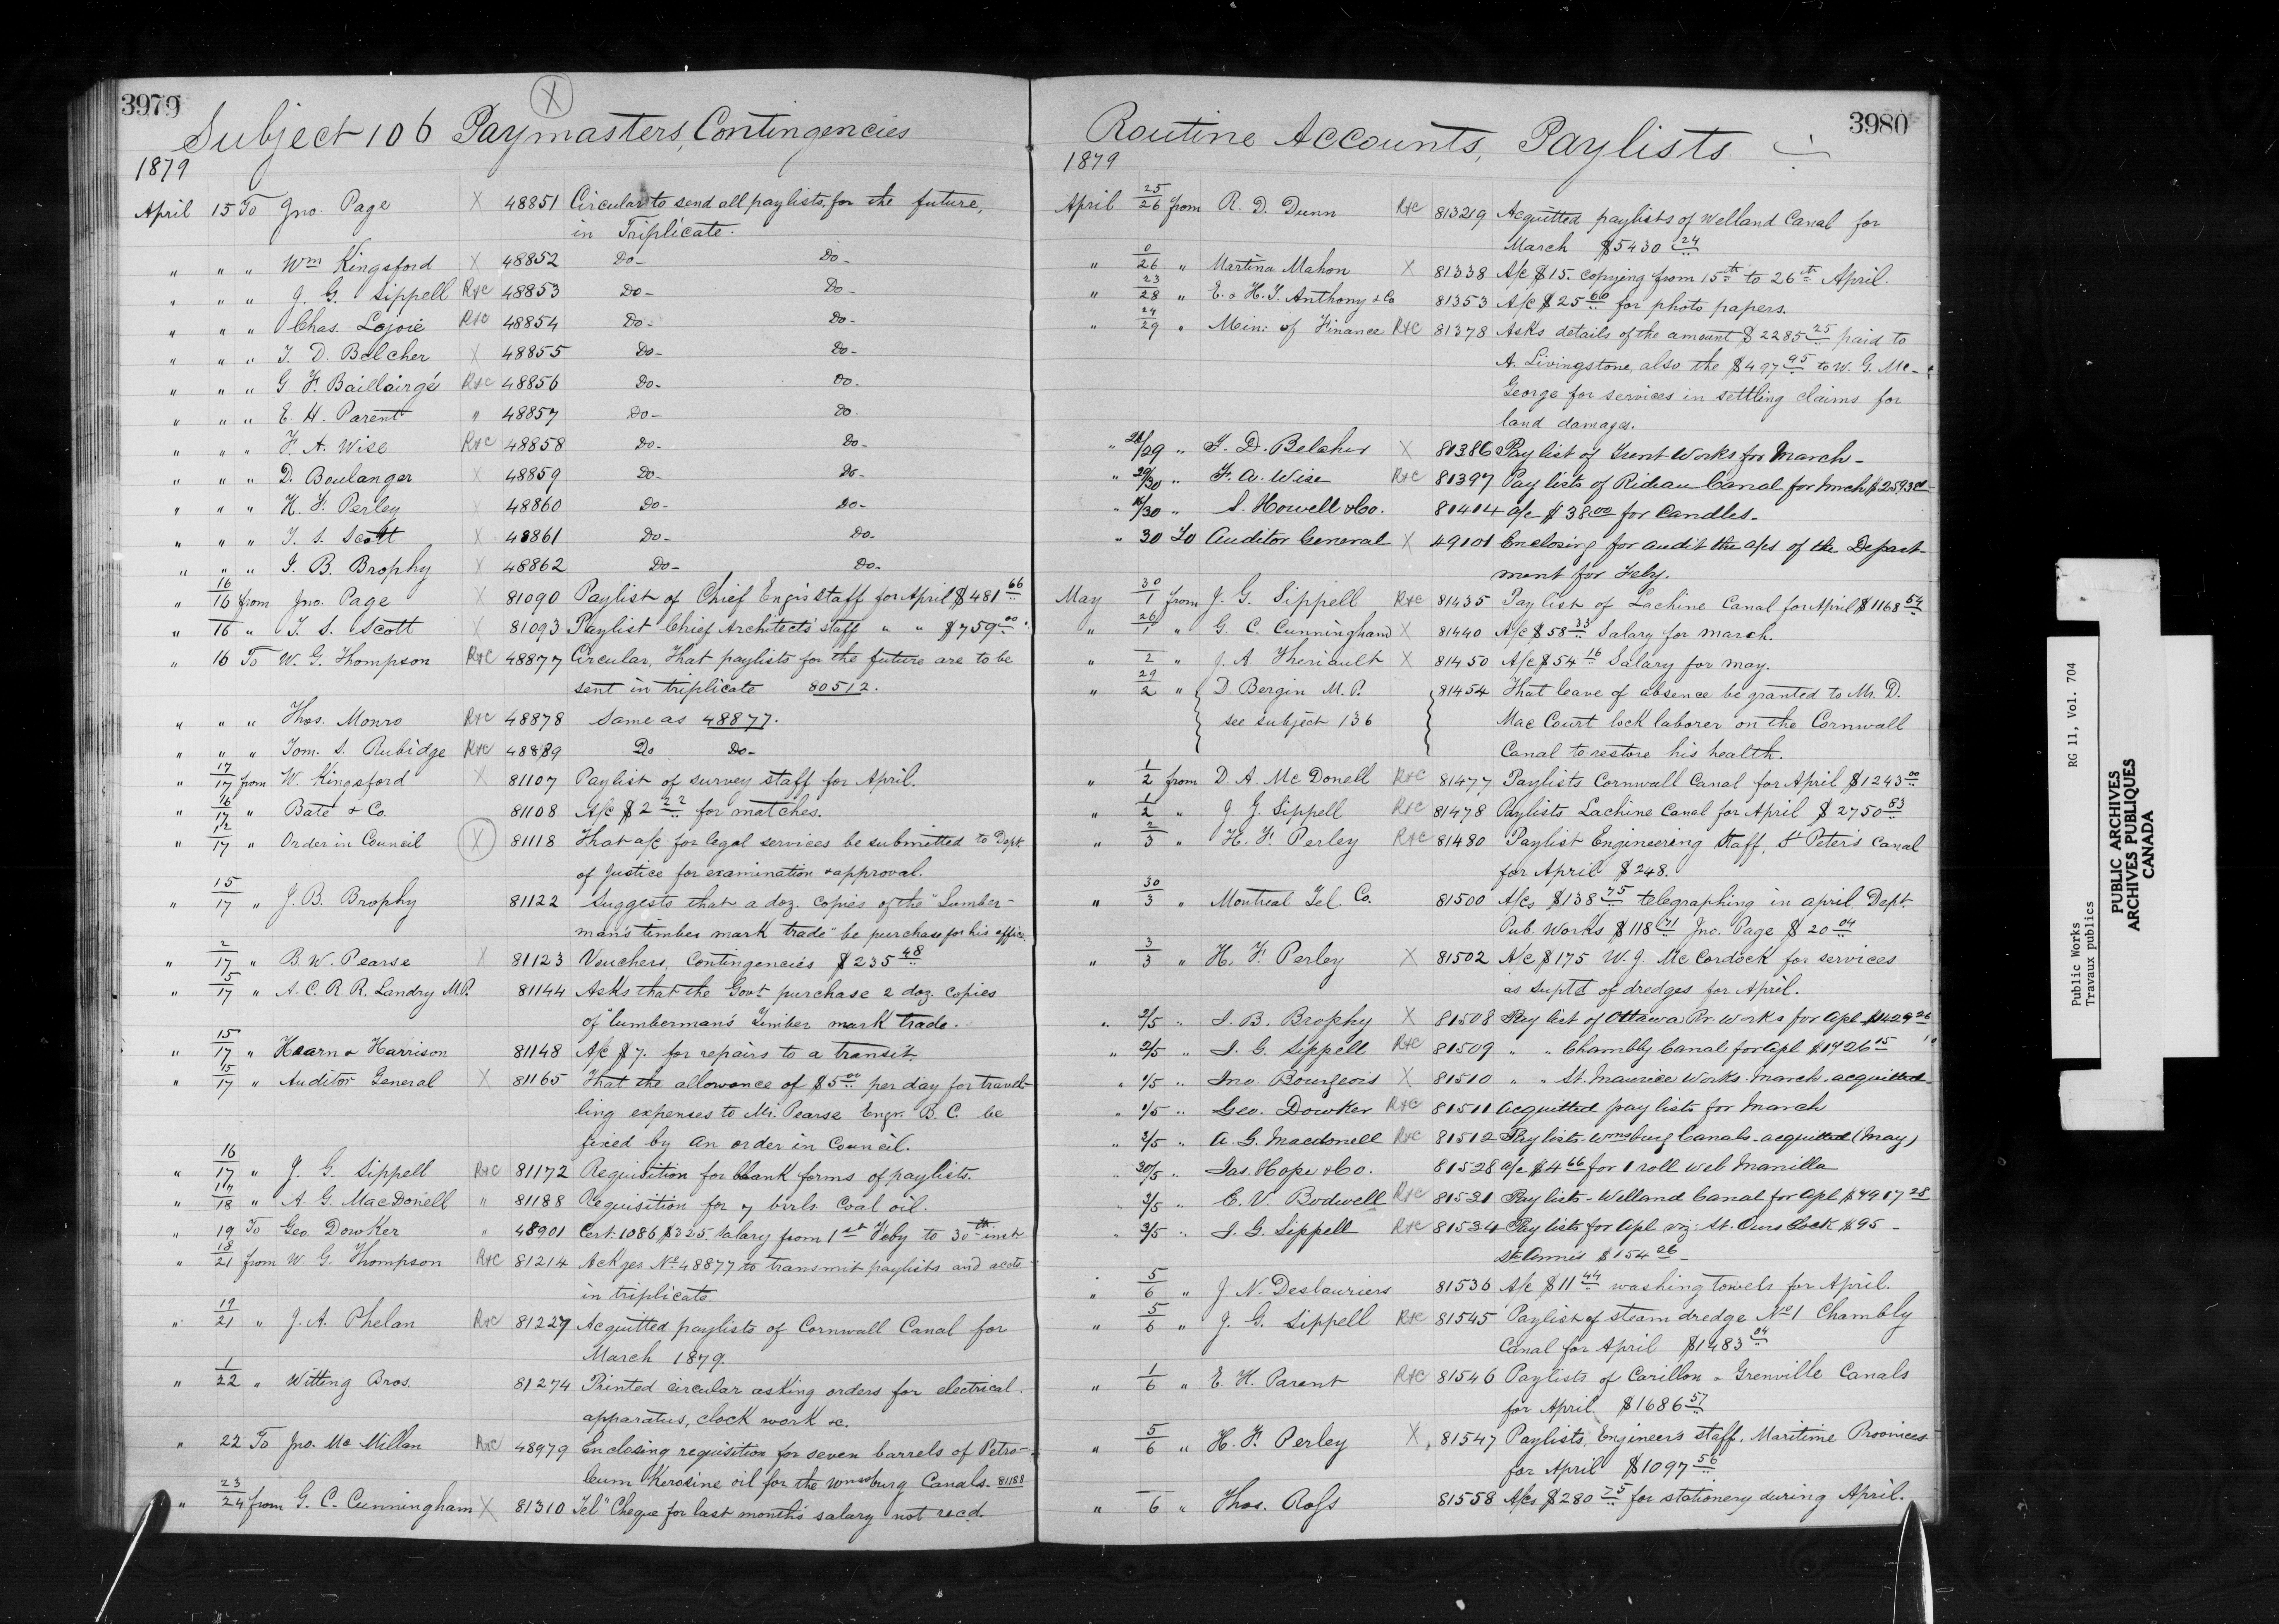 3979
X
Subject 106 Paymasters, Contingencies
1879
April 15 To Jno. Page X 48851 Circular to send all paylists, for the future,
in Triplicate.
" " " Wm Kingsford X 48852 Do- Do-
" " " J. G. Sippell R&C 48853 Do- Do-
" " " Chas. Lajoie R&C 48854 Do- Do-
" " " T. D. Belcher X 48855 Do- Do-
" " " G. F. Baillairgé R&C 48856 Do- Do.
" " " E. H. Parent " 48857 Do- Do.
" " " F. A. Wise R&C 48858 Do- Do-
" " " D. Boulanger X 48859 Do- Do-
" " " H. F. Perley X 48860 Do- Do-
" " " T. S. Scott X 48861 Do- Do-
" " " J. B. Brophy X 48862 Do- Do-
" 16/16 from Jno. Page X 81090 Paylist of Chief Engrs staff for April $481 66
" 16 " T. S. Scott X 81093 Paylist Chief Architects' staff " " $759 00
" 16 To W. G. Thompson R&C 48877 Circular, That paylists for the future are to be
sent in triplicate 80512.
" " " Thos. Monro R&C 48878 Same as 48877.
" " " Tom. S. Rubidge R&C 48879 Do Do-
" 17/17 from W. Kingsford X 81107 Paylist of survey staff for April.
" 16/17 " Bate & Co. 81108 A/c $2 22 for matches.
" 12/17 " Order in Council X 81118 That a/c for legal services be submitted to Dept.
of Justice for examination & approval.
" 15/17 " J. B. Brophy 81122 Suggests that a doz. copies of the "Lumber-
man's timber mark trade" be purchase for his office.
" 2/17 " B. W. Pearse X 81123 Vouchers, Contingencies $235 48
" 15/17 " A. C. P. R. Landry M.P. 81144 Asks that the Govt purchase 2 doz. copies
of "lumberman's Timber mark trade.
" 15/17 " Hearn & Harrison 81148 A/c $7. for repairs to a transit.
" 15/17 " Auditor General X 81165 That the allowance of $5 00 per day for travel-
ling expenses to Mr. Pearse Engr. B. C. be
fixed by an order in Council.
" 16/17 " J. G. Sippell R&C 81172 Requisition for blank forms of paylists.
" 17/18 " A. G. MacDonell " 81188 Requisition for 7 brrls Coal oil.
" 19 To Geo. Dowker " 48901 Cert. 1086 $325 salary from 1st Feby to 30th inst
" 18/21 from W. G. Thompson R&C 81214 Ackges No 48877 to transmit paylists and accts
in triplicate.
" 19/21 " J. A. Phelan R&C 81227 Acquitted paylists of Cornwall Canal for
March 1879.
" 1/22 " Witting Bros. 81274 Printed circular asking orders for electrical
apparatus, clock work &c.
" 22 To Jno. McMillan R&C 48979 Enclosing requisition for seven barrels of Petro-
leum Kerosine oil for the Wmsburg Canals. 81188
" 23/24 from G. C. Cunningham X 81310 Tel" Cheque for last month's salary not recd.
3980
Routine Accounts, Paylists
1879
April 25/26 from R. D. Dunn R&C 81329 Acquitted paylists of Welland Canal for
March $5430 24
" 0/26 " Martina Mahon X 81338 A/c $15. copying from 15th to 26th April.
" 23/28 " E. & H. T. Anthony & Co 81353 A/c $25 60 for photo papers.
" 24/29 " Min: of Finance R&C 81378 Asks details of the amount $2285 25 paid to
A. Livingstone, also the $497 95 to W. G. Mc-
George for services in settling claims for
land damages.
" 28/29 " T. D. Belcher X 81386 Pay list of Trent Works for March-
" 29/30 " F. A. Wise R&C 81397 Pay lists of Rideau Canal for Mrch
" 16/30 " S. Howell & Co. 81404 a/c $38 00 for Candles-
" 30 To Auditor General X 49101 Enclosing for audit the a/cs of the Depart-
ment for Feby.
May 30/1 from J. G. Sippell R&C 81435 Paylist of Lachine Canal for April $1168 54
" 26/1 " G. C. Cunningham X 81440 A/c $58 33 Salary for march.
" 2 " J. A Theriault X 81450 A/c $54 16 Salary for may.
" 29/2 " D. Bergin M.P. 81454 That leave of absence be granted to Mr. D.
see subject 136 Mac Court lock laborer on the Cornwall
Canal to restore his health.
" 1/2 from D. A. McDonell R&C 81477 Paylists Cornwall Canal for April $1243 00
" 1/2 " J. G. Sippell R&C 81478 Paylists Lachine Canal for April $2750 83
" 2/3 " H. F. Perley R&C 81480 Paylist Engineering Staff, St Peter's Canal
for April $248.
" 30/3 " Montreal Tel. Co. 81500 A/cs $138 75 telegraphing in april Dept.
Pub. Works $118 71 Jno. Page $20 04
" 3/3 " H. F. Perley X 81502 A/c $175 W. J. McCordock for services
as suptd of dredges for April.
" 2/5 " J. B. Brophy X 81508 Pay list of Ottawa Rr. Works for Apl $1429 26
" 2/5 " J. G. Sippell R&C 81509 " " Chambly Canal for Apl $1726 15
" 1/5 " Jno. Bourgeois X 81510 " " St. Maurice Works. March. acquitted
" 1/5 " Geo. Dowker R&C 81511 Acquitted pay lists for March
" 3/5 " A. G. Macdonell R&C 81512 Pay lists Wmsburg Canals. acquitted (May)
" 30/5 " Jas. Hope & Co. 81528 a/c $4 66 for 1 roll web Manilla
" 3/5 " E. V. Bodwell R&C 81531 Pay lists - Welland Canal for Apl $4917 28
" 3/5 " J. G. Sippell R&C 81534 Pay lists for Apl viz: St. Ours Lock $95 -
St Anne's $154 26
" 5/6 " J. N. Deslauriers 81536 A/c $11 44 washing towels for April.
" 5/6 " J. G. Sippell R&C 81545 Paylist of steam dredge No 1 Chambly
Canal for April $1483 04
" 1/6 " E. H. Parent R&C 81546 Paylists of Carillon & Grenville Canals
for April $1686 57
" 5/6 " H. F. Perley X 81547 Paylists, Engineer's staff, Maritime Provinces
for April $1097 56
" 6 " Thos. Ross 81558 A/cs $280 75 for stationery during April.
Public Works RG 11, Vol. 704
Travaux publics
PUBLIC ARCHIVES
ARCHIVES PUBLIQUES
CANADA